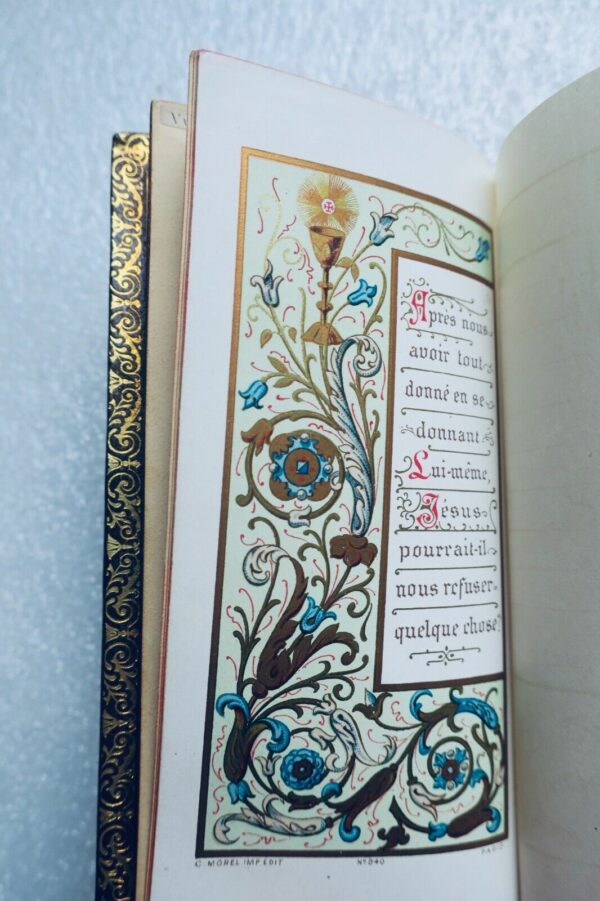 Après nous
avoir tout
donné en se
donnant
Lui-même,
Jésus
pourrait-il
nous refuser
quelque chose?
C. MOREL IMP. EDIT
No 340
PARIS